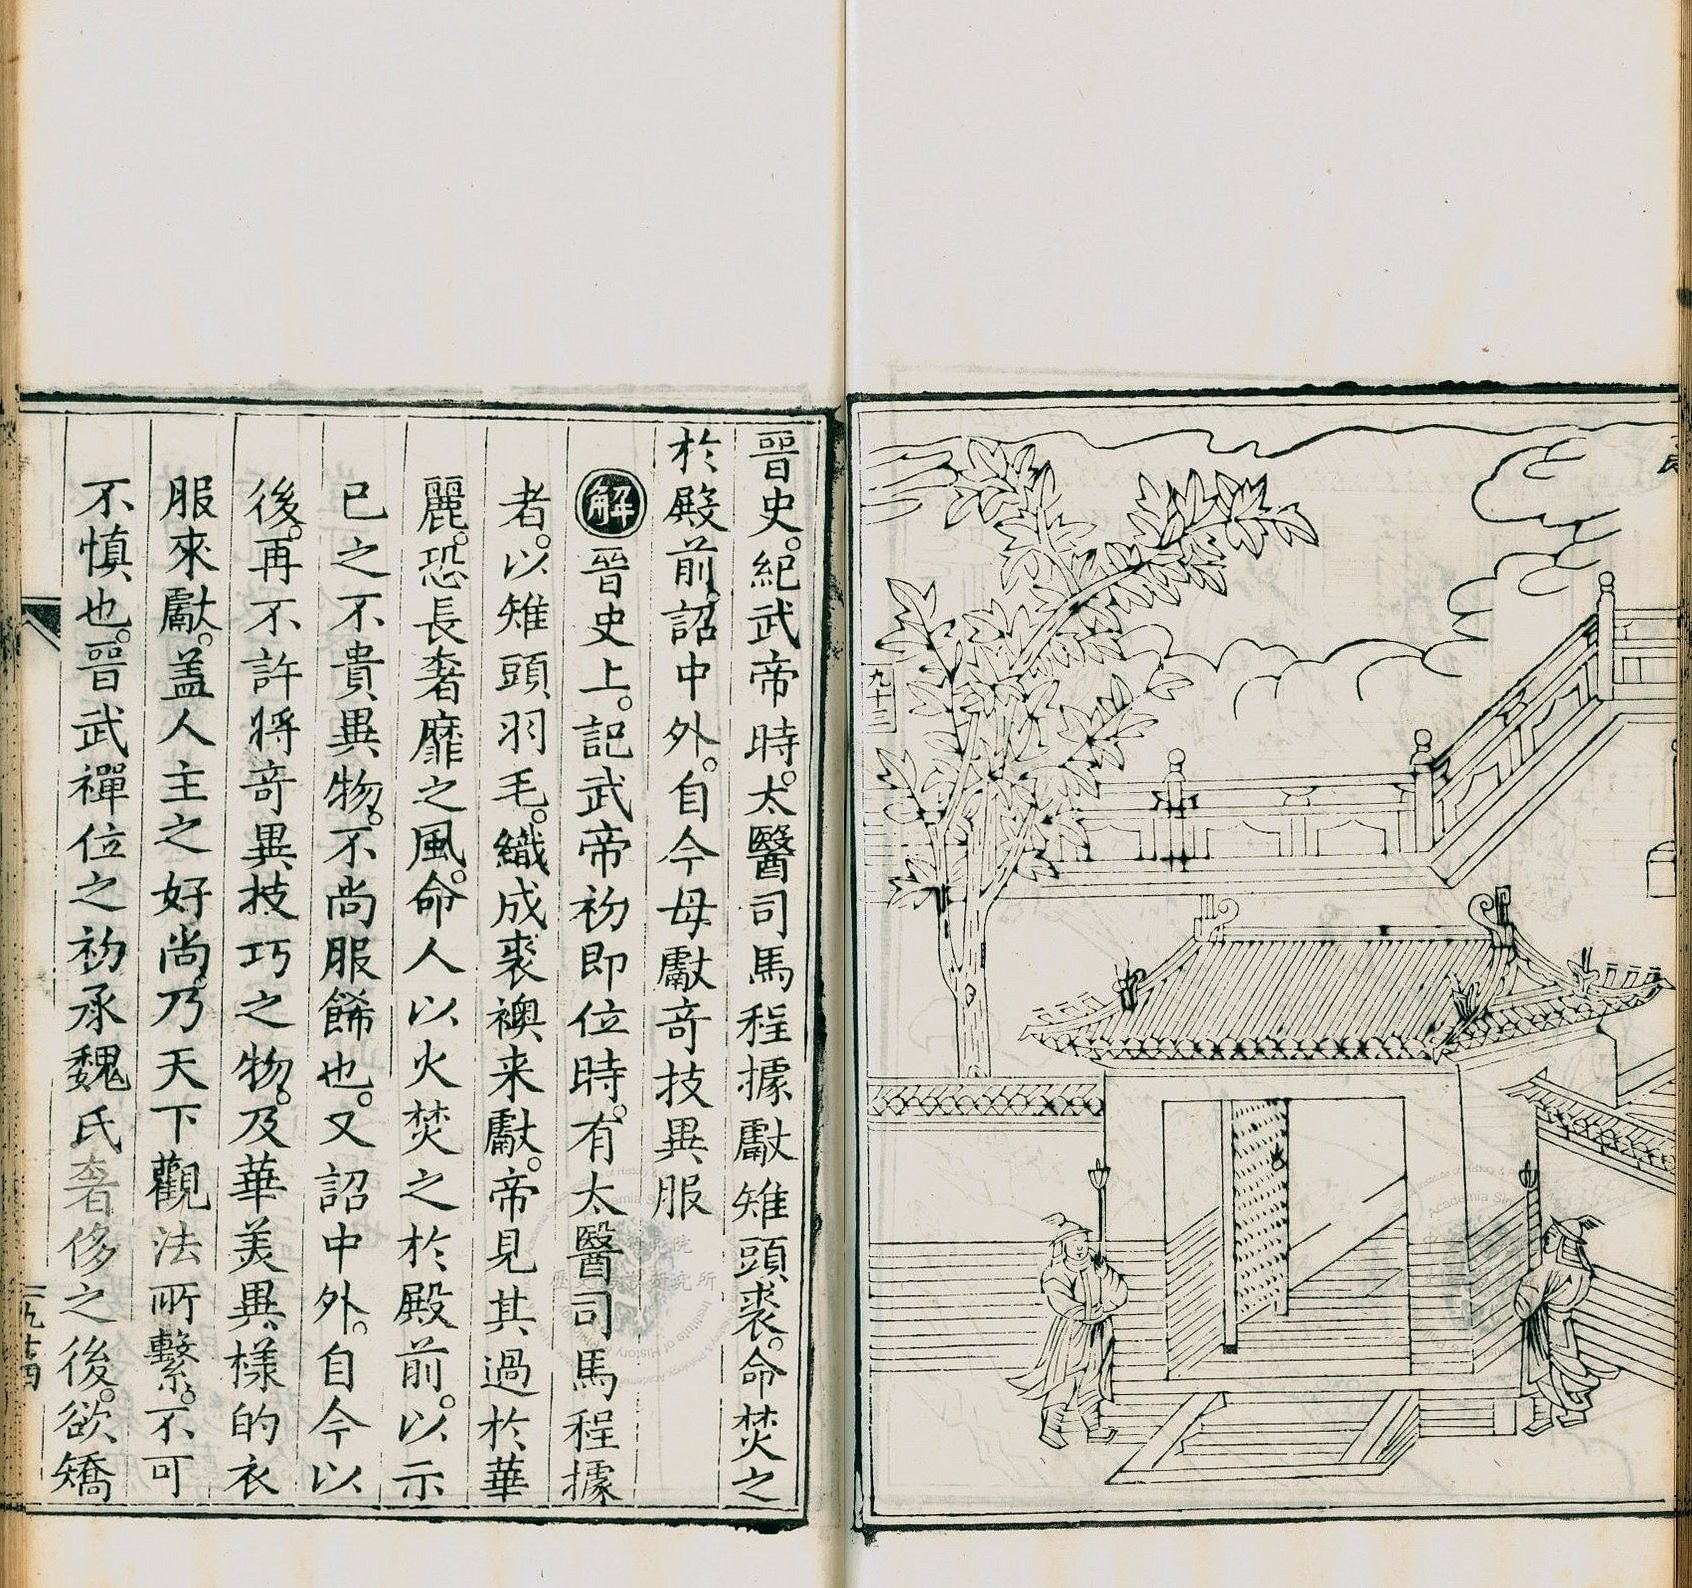 九十三
晉史。紀武帝時。太醫司馬程據獻雉頭裘。命焚之
於殿前。詔中外。自今毋獻奇技異服
解晉史上。記武帝初即位時。有太醫司馬程據
者。以雉頭羽毛。織成裘襖来獻。帝見其過於華
麗。恐長奢靡之風。命人以火焚之於殿前。以示
已之不貴異物。不尚服餙也。又詔中外。自今以
後。再不許將奇異技巧之物。及華美異樣的衣
服來獻。盖人主之好尚。乃天下觀法所繫。不可
不慎也。晉武禪位之初。承魏氏奢侈之後。欲矯
九十四